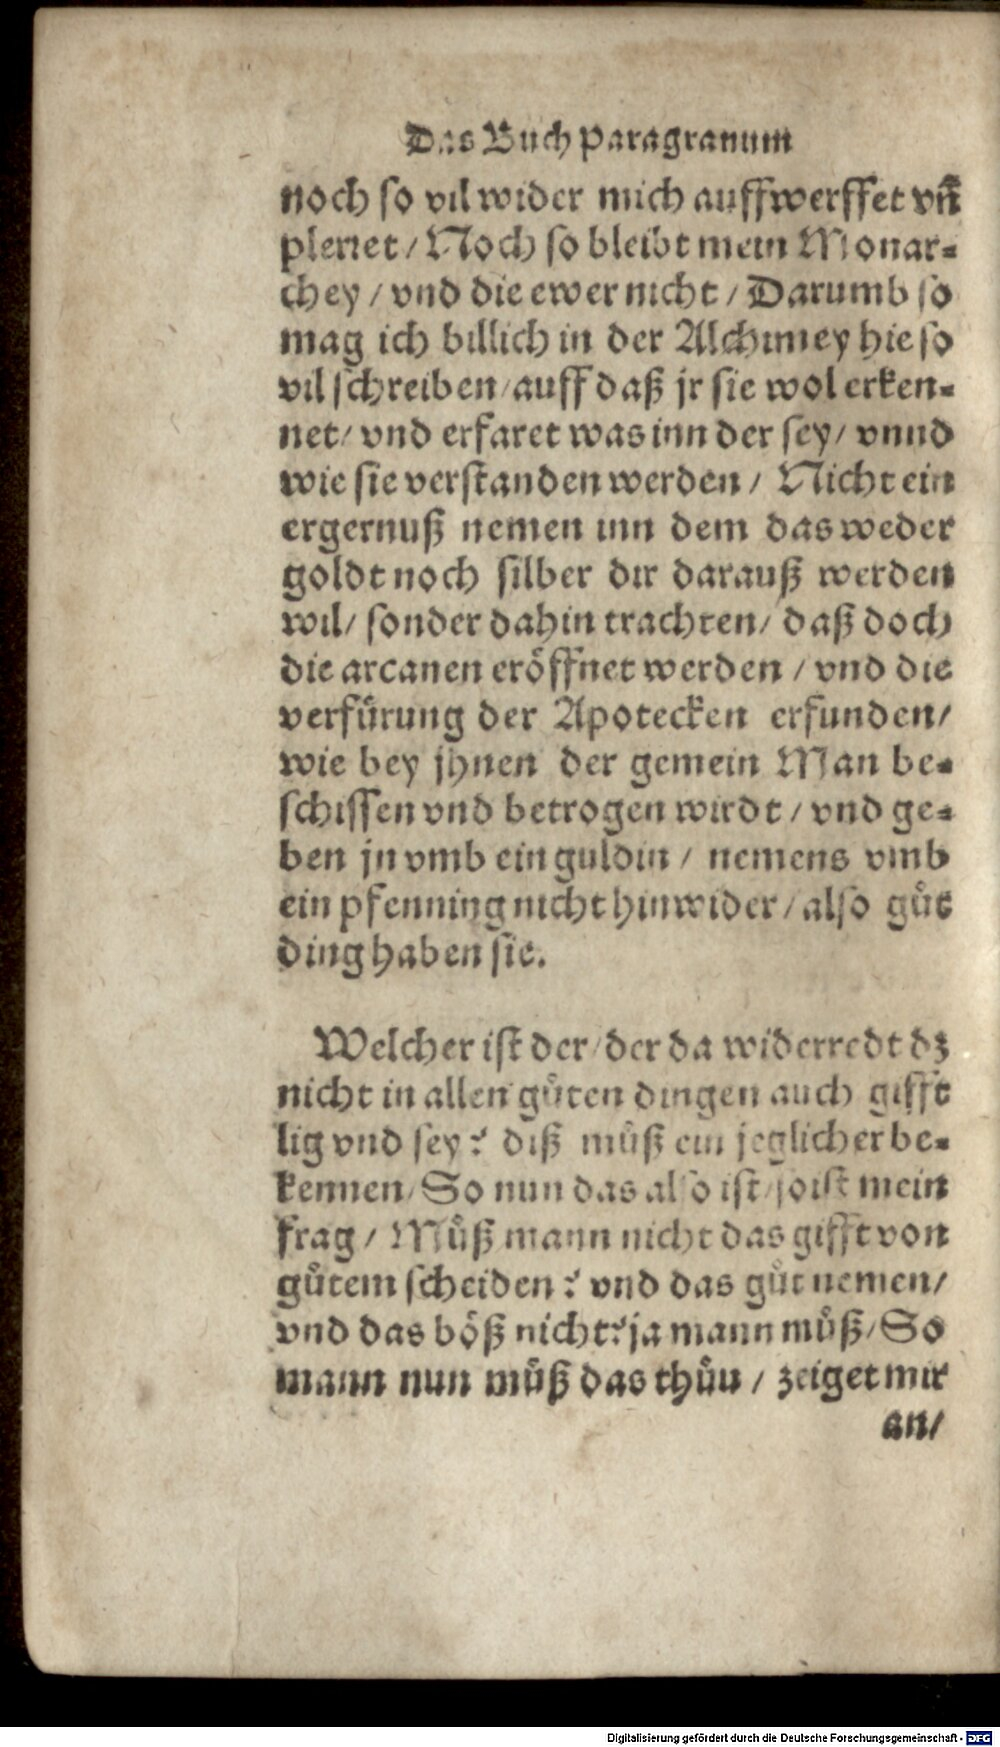 Das Buch Paragranum
noch so vil wider mich auffwerffet vñ
plerret / Noch so bleibt mein Monar-
chey / vnd die ewer nicht / Darumb so
mag ich billich in der Alchimey hie so
vil schreiben / auff daß jr sie wol erken-
net / vnd erfaret was inn der sey / vnnd
wie sie verstanden werden / Nicht ein
ergernuß nemen inn dem das weder
goldt noch silber dir darauß werden
wil / sonder dahin trachten / daß doch
die arcanen eröffnet werden / vnd die
verfürung der Apotecken erfunden /
wie bey jhnen der gemein Man be-
schissen vnd betrogen wirdt / vnd ge-
ben jn vmb ein guldin / nemens vmb
ein pfenning nicht hinwider / also gůt
ding haben sie.
Welcher ist der / der da widerredt dz
nicht in allen gůten dingen auch gifft
lig vnd sey? diß můß ein jeglicher be-
kennen / So nun das also ist / so ist mein
frag / Můß mann nicht das gifft von
gůtem scheiden? vnd das gůt nemen /
vnd das böß nicht? ja mann můß / So
mann nun můß das thůn / zeiget mir
an /
Digitalisierung gefördert durch die Deutsche Forschungsgemeinschaft - DFG